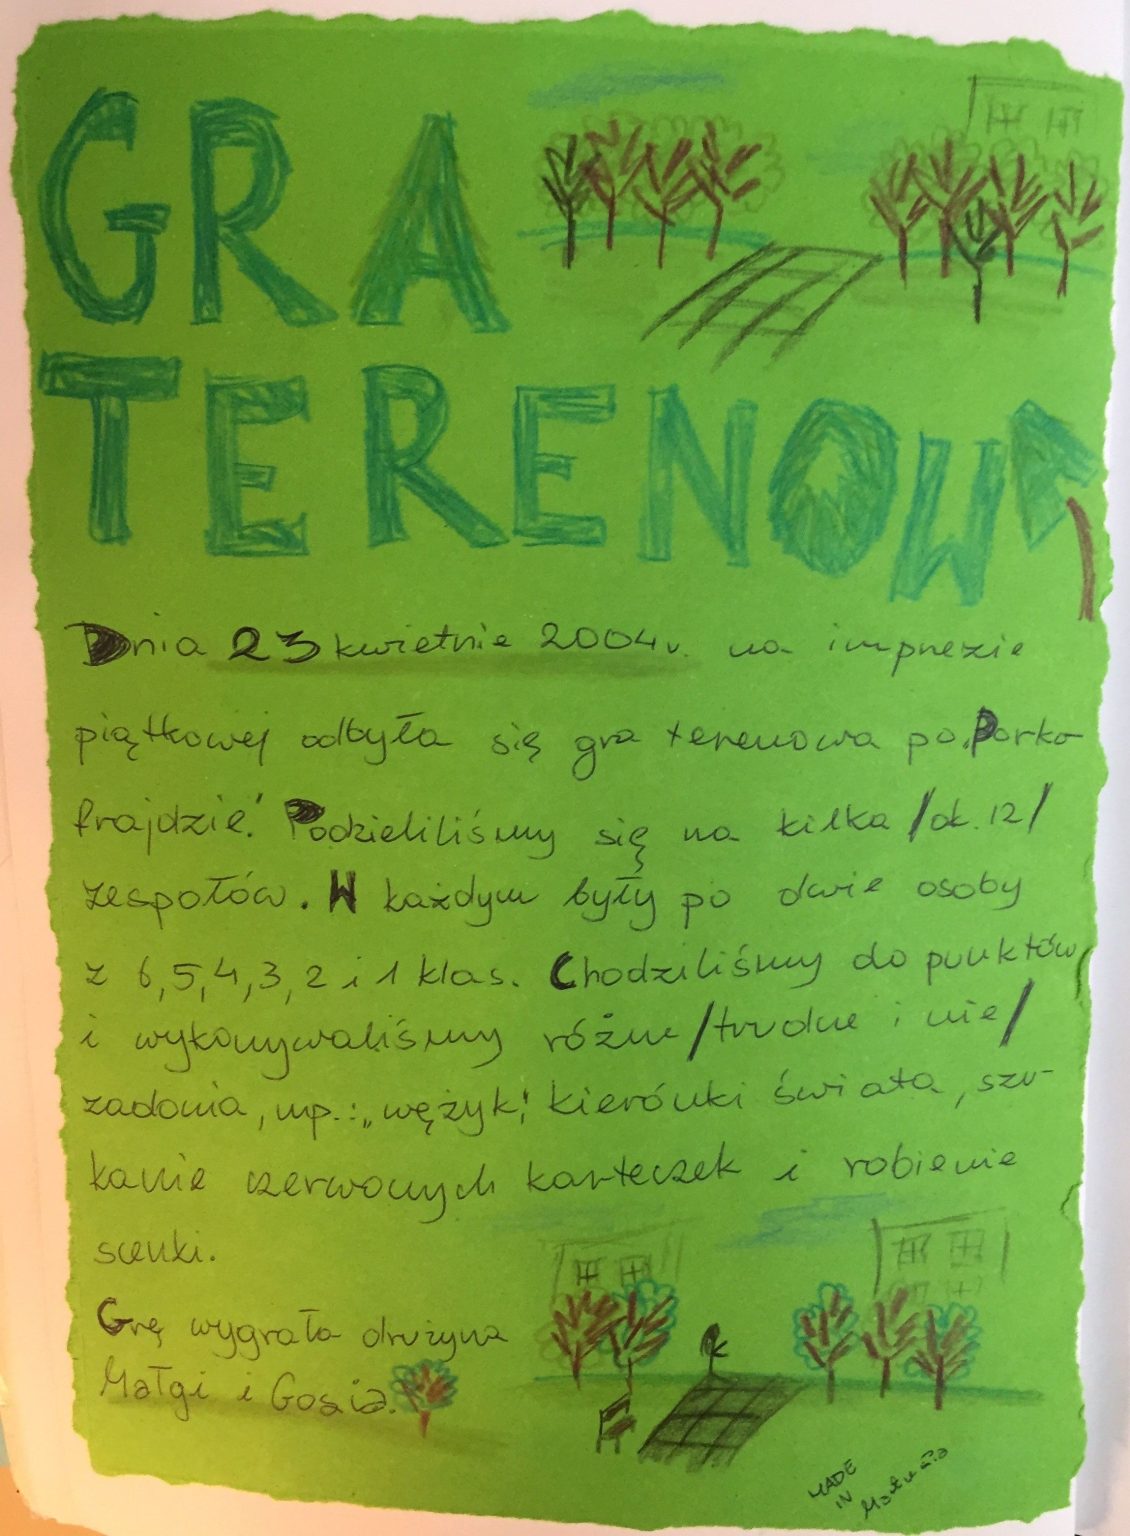 GRA
TERENOWA
Dnia 23 kwietnie 2004r. na imprezie
piątkowej odbyła się gra terenowa po „Parko
frajdzie." Podzieliliśmy się na kilka /ok. 12/
zespołów. W każdym były po dwie osoby
z 6,5,4,3,2 i 1 klas. Chodziliśmy do punktów
i wykonywaliśmy różne /trudne i nie/
zadania, np.: „wężyk", kierónki świata, szu-
kanie czerwonych karteczek i robienie
scenki.
Grę wygrała drużyna
Małgi i Gosia.
MADE
IN